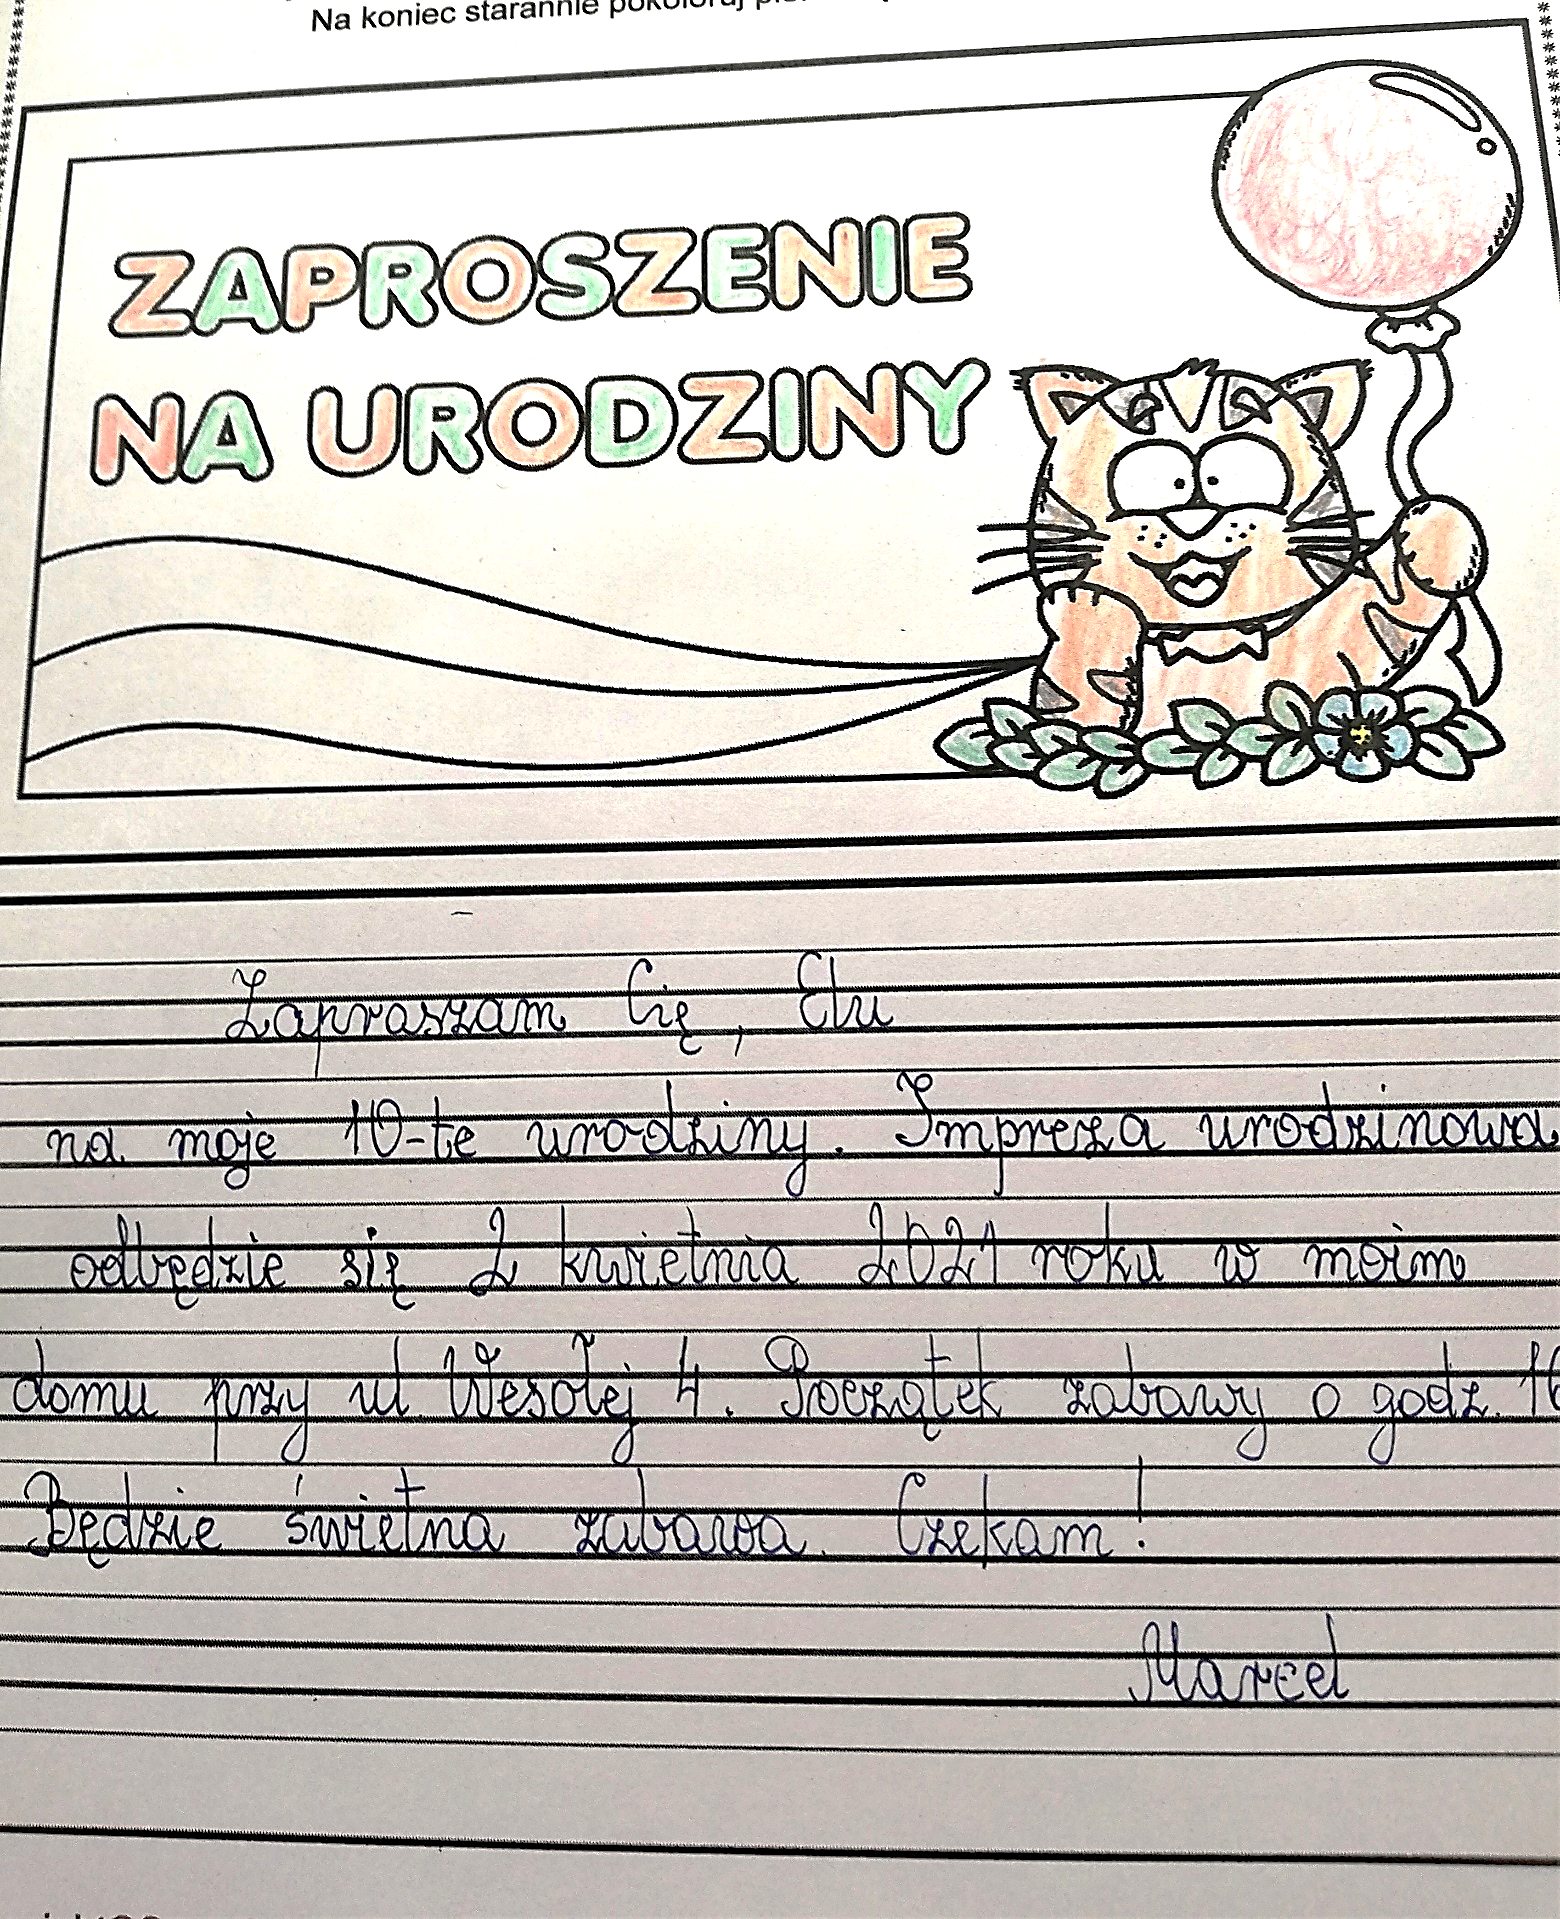 Na koniec starannie pokoloruj
ZAPROSZENIE
NA URODZINY
Zapraszam Cię, Elu
na moje 10-te urodziny. Impreza urodzinowa
odbędzie się 2 kwietnia 2021 roku w moim
domu przy ul. Wesołej 4. Początek zabawy o godz. 16
Będzie świetna zabawa. Czekam!
Marcel